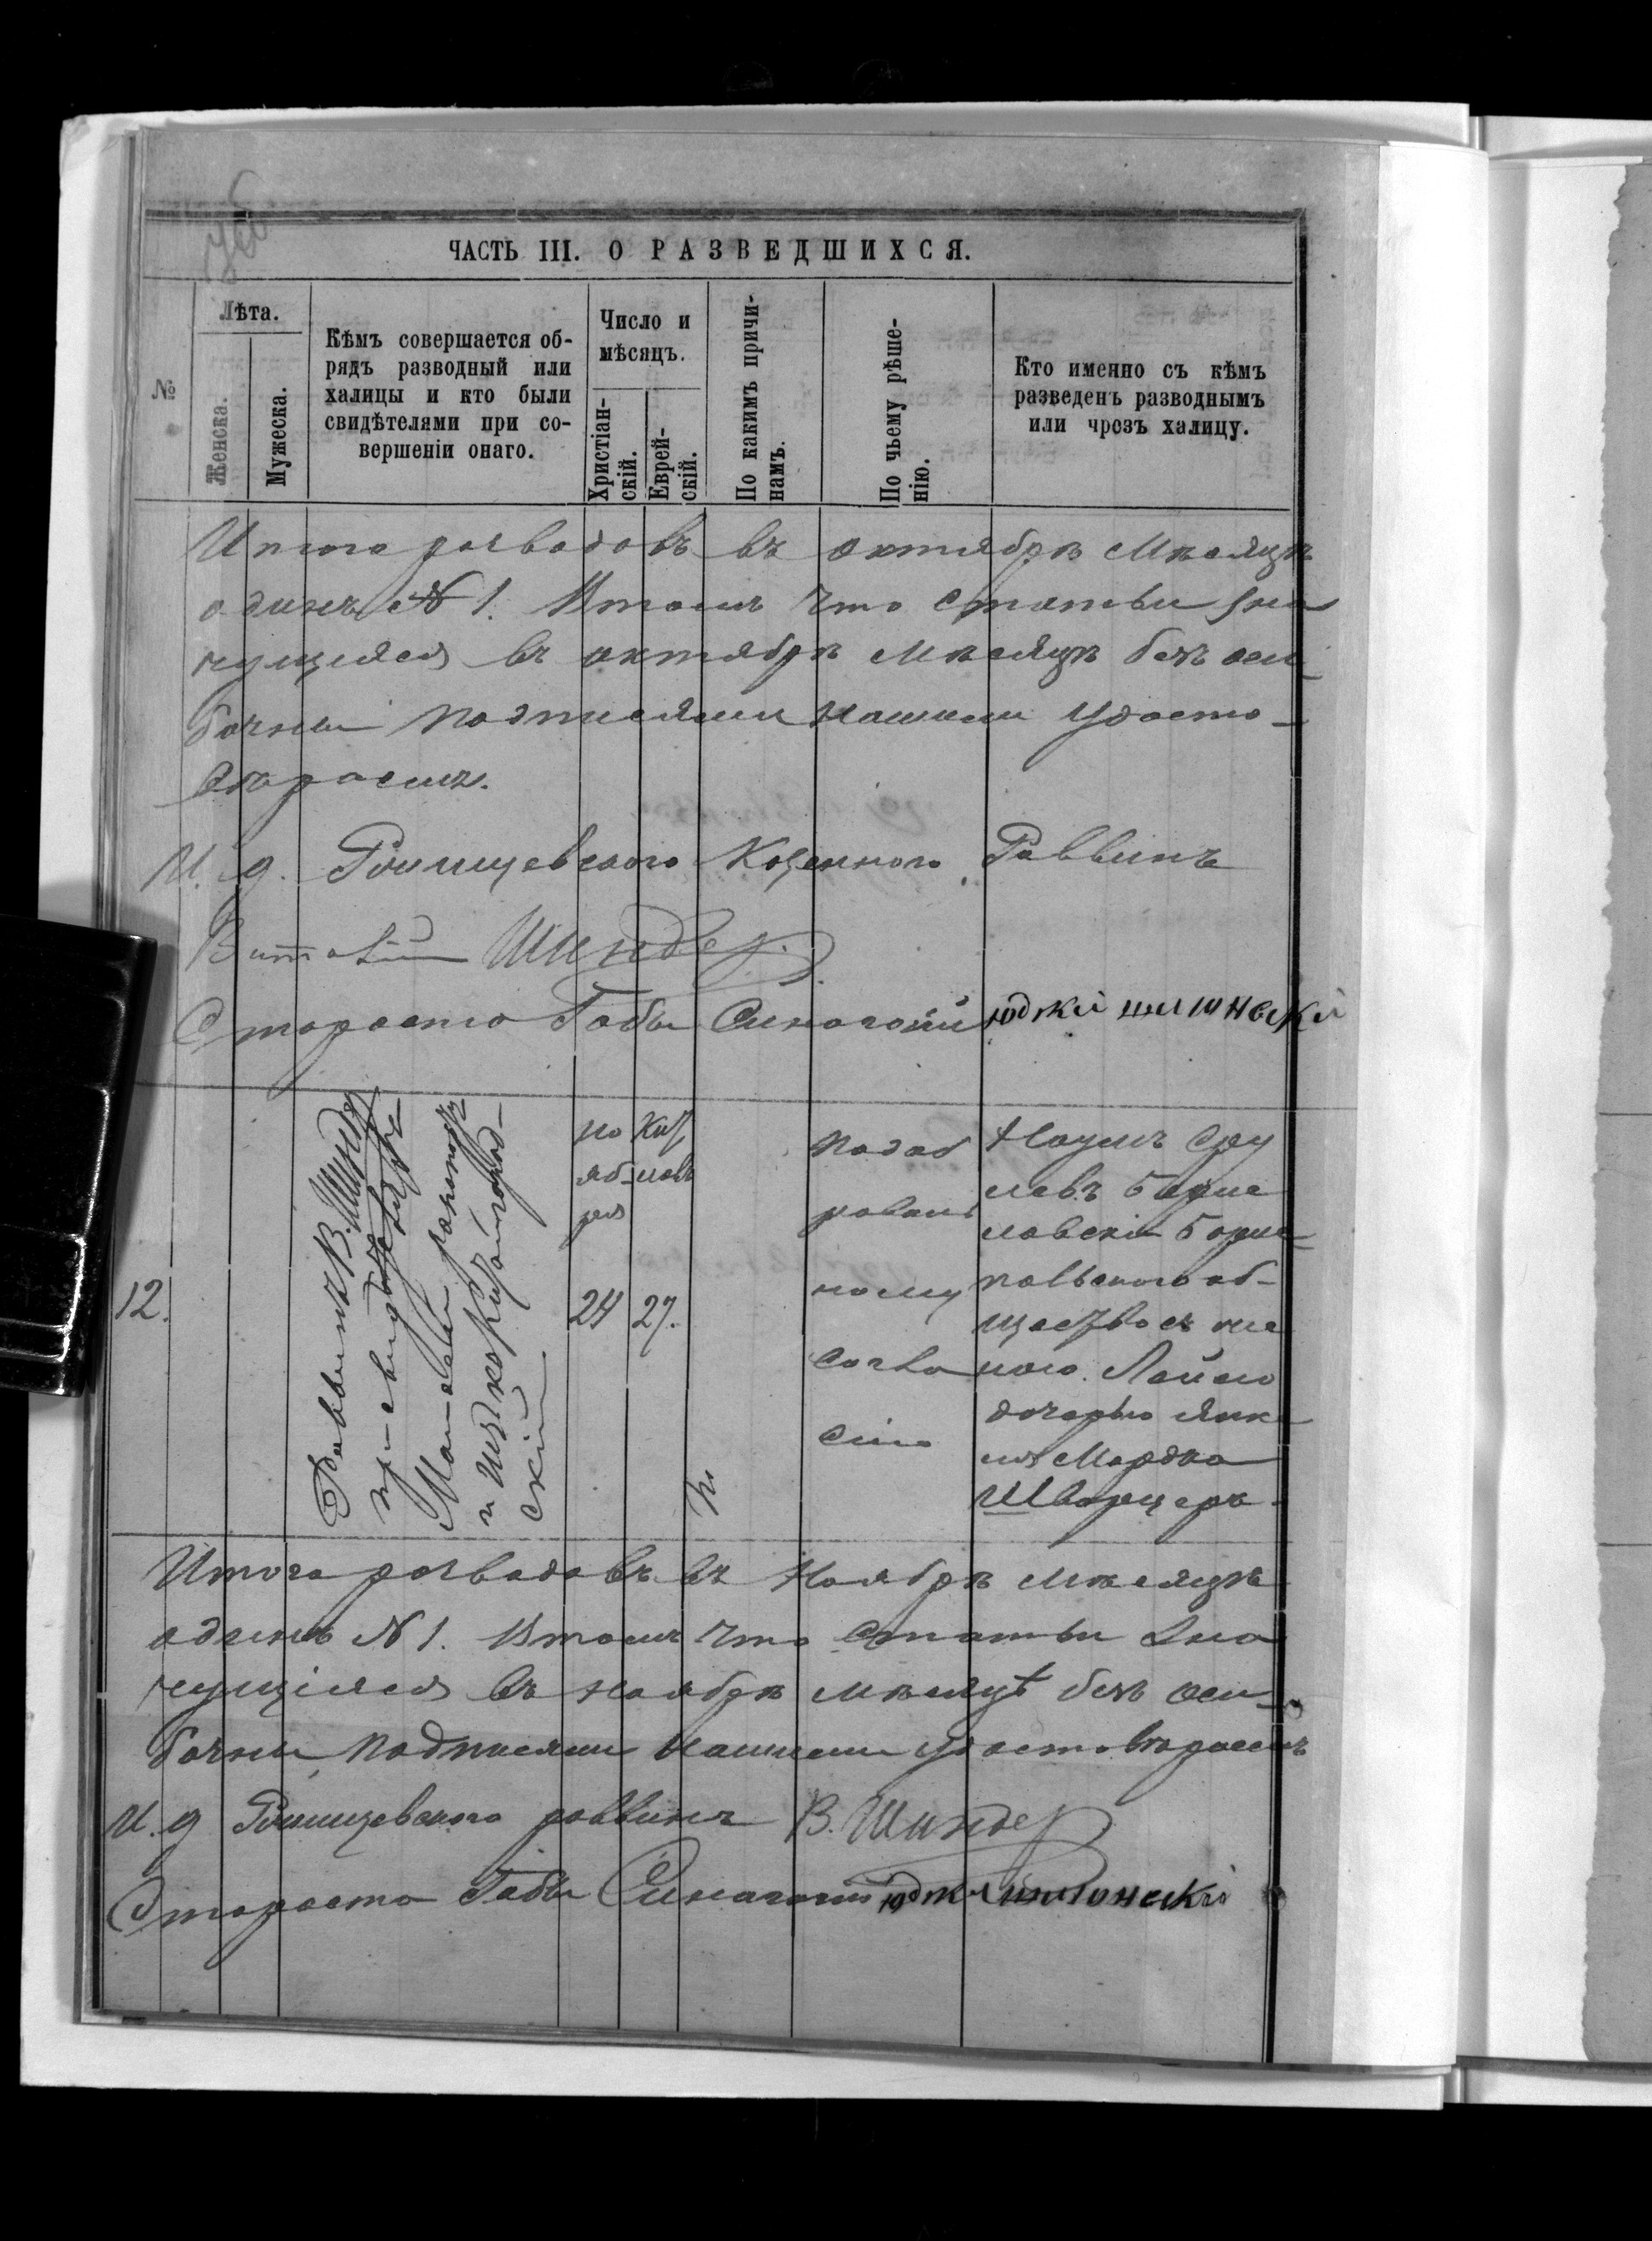 ЧАСТЬ III. О РАЗВЕДШИХСЯ.
№
Лѣта.
Женска.
Мужеска.
Кѣмъ совершается об-
рядъ разводный или
халицы и кто были
свидѣтелями при со-
вершеніи онаго.
Число и
мѣсяцъ.
Христіан-
скій.
Еврей-
скій.
По какимъ причи-
намъ.
По чьему рѣше-
нію.
Кто именно съ кѣмъ
разведенъ разводнымъ
или чрозъ халицу.
Итого розводовъ въ октябрѣ Мѣсяцѣ
одинъ № 1. Втомъ что статьи зна
чущіяся въ октябрѣ мѣсяцѣ безъ оши_
бочны подписями нашими удосто-
вѣраемъ.
И. д. Казенного Раввинъ
Шиндер
Староста Габы Синагоги
12.
Раввинъ В. Шиндер
при свидѣ
и Ицко Китайгород-
скій
но
яб-
ря
24
Кис
левъ
27.
по доб
ровол
ному
согла
сію
Наумъ Сру
левъ
общества съ же
ною
дочерью Янке
ля Мордко
Шварцеръ
Итого розводовъ въ Ноябрѣ мѣсяцѣ
одинъ № 1. Втомъ что статьи Зна
чущіяся въ ноябрѣ мѣсяцѣ безъ оши_
бочны, подписями нашими удостовѣраемъ
И. д раввинъ В. Шиндер
Староста Габы Синагоги